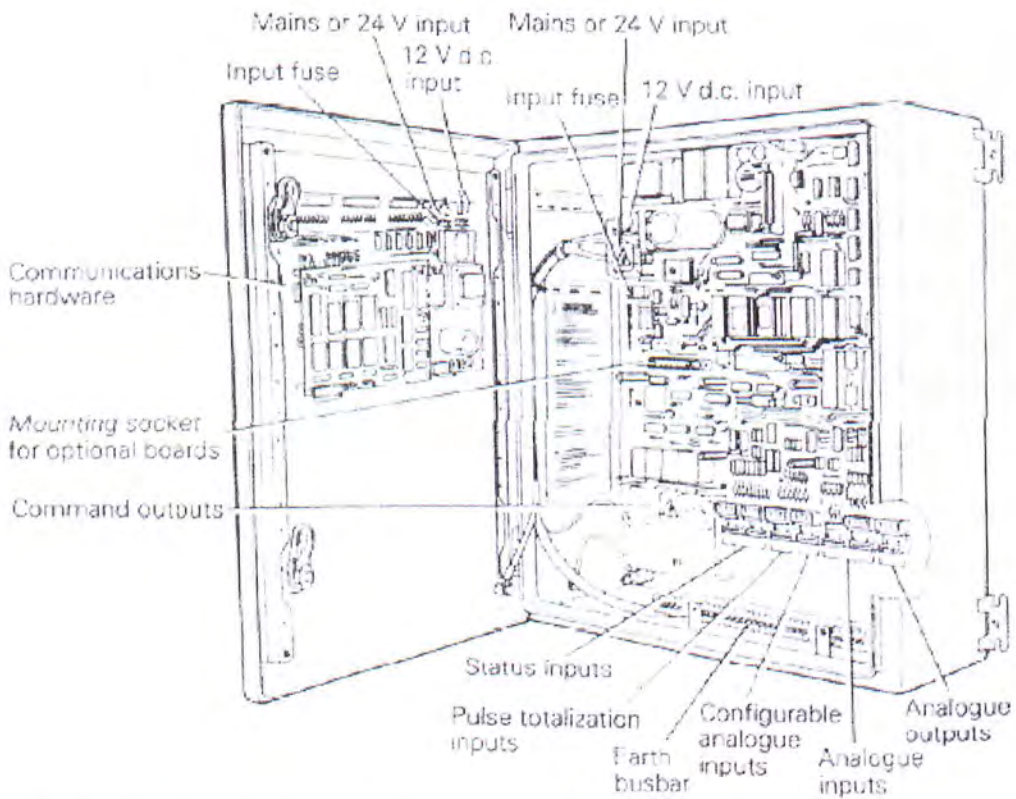 Mains or 24 V input
12 V d.c.
input
Input fuse
Mains or 24 V input
Input fuse
12 V d.c. input
Communications
hardware
Mounting socket
for optional boards
Command outputs
Status inputs
Pulse totalization
inputs
Earth
busbar
Configurable
analogue
inputs
Analogue
inputs
Analogue
outputs